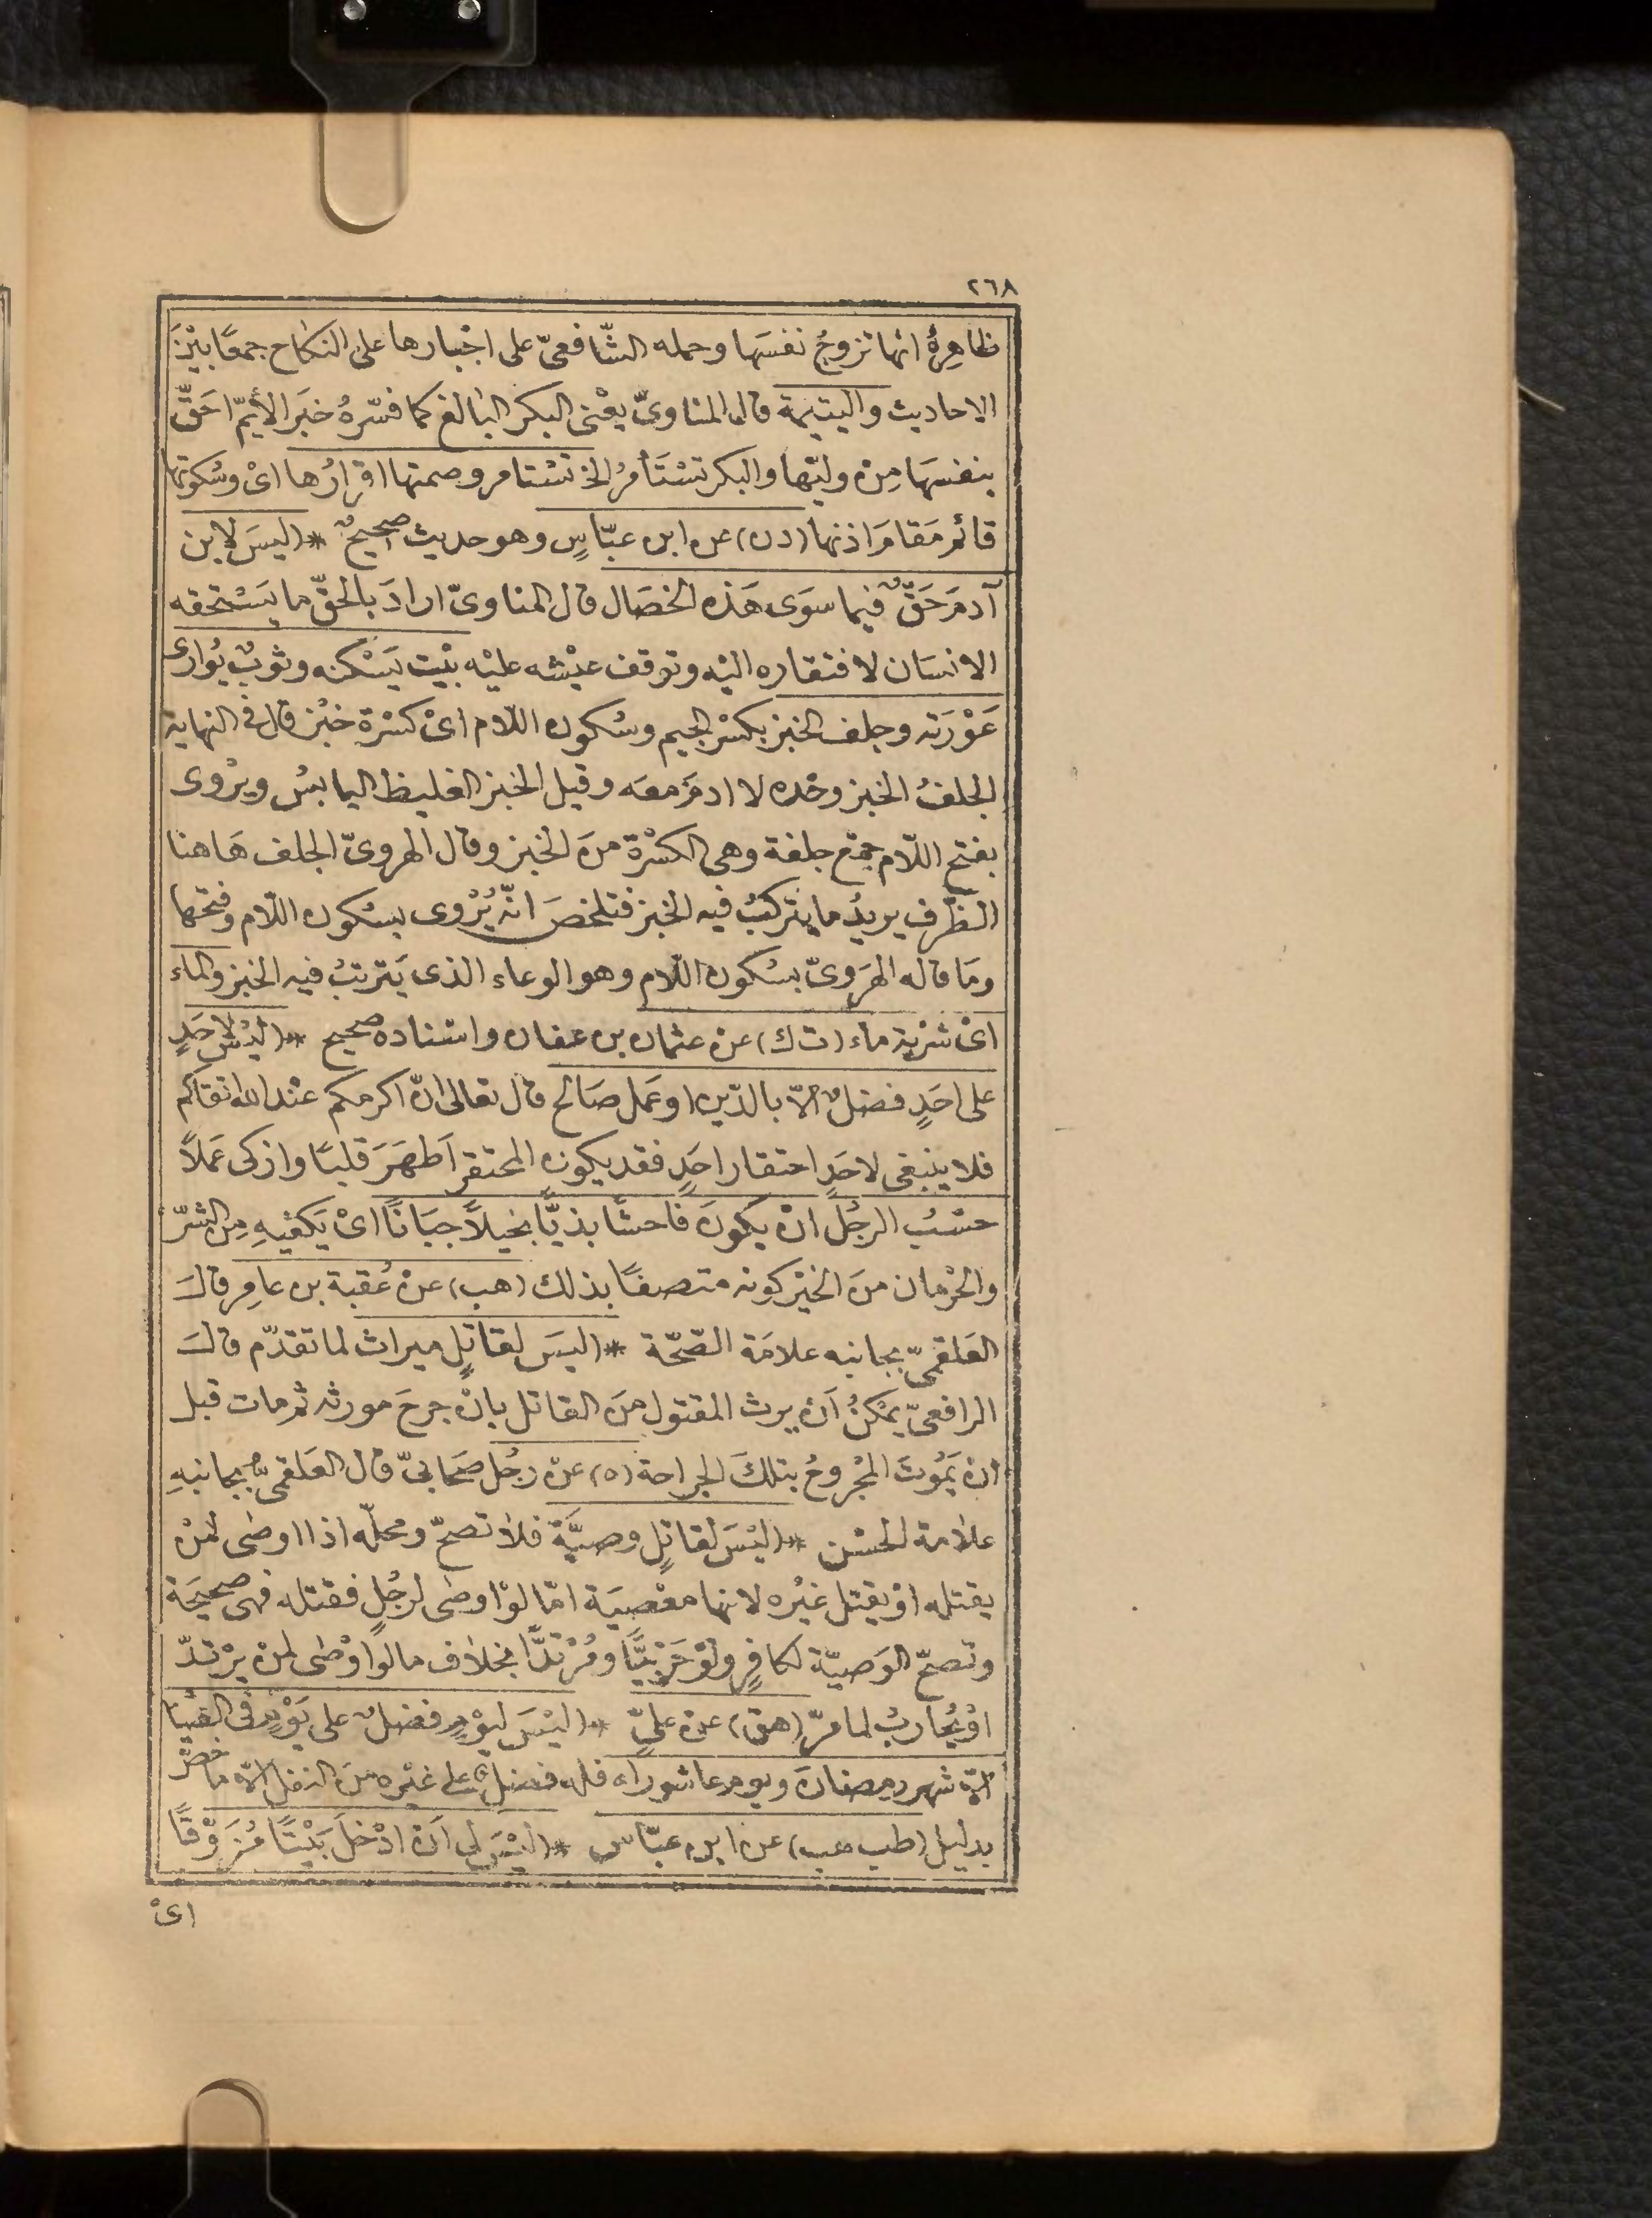 ٢٦٨
ظاهِرهُ انها تزوجُ نفسَها وحمله الشّافعىّ على اجْبارها على النكاح جمعًا بيْنَ
الاحاديث واليتيمة قال المناوىّ يعْنى البكر البالغ كما فسّرهُ خبَر الأيمّ احَقّ
بنفسَها مِنْ وليّها والبكر تسْتَأمرُ الخ تسْتامر وصمتها اقرارُها اىْ وسُكوتها
قائم مَقامَ اذنها (د ن) عن ابن عبّاسٍ وهو حديث صحيحٌ * (ليسَ لابن
آدمَ حَقٌّ فيما سوَى هَذه الخصَال قال المناوىّ ارادَ بالحَقّ ما يَسْتحقه
الانسَان لافتقاره اليْه وتوقف عيْشه عليْه بيْت يَسْكنه وثوبٌ يُوارى
عَوْرَته وجلف الخبز بكسْر الجيم وسُكون اللّام اىْ كسْرة خبْز قال فى النهاية
الجلفُ الخبز وحْده لا ادمَ معَه وقيل الخبز الغليظ اليابسُ ويرْوى
بفتح اللّام جمْع جلفة وهى الكسْرة منَ الخبز وقال الهروىّ الجلف هَاهنا
الظّرف يريدُ ما يتركبُ فيه الخبز فتلخصَ انّه يُرْوى بسُكون اللّام وفتحها
ومَا قاله الهَروىّ بسُكون اللّام وهو الوعاء الذى يَترتبُ فيه الخبز والماء
اىْ شرْبة ماء (ت ك) عنْ عثمان بن عفان واسْناده صحيح * (ليْسَ لاحَدٍ
على احَدٍ فضلٌ الّا بالدّين او عَمل صَالح قال تعَالى انّ اكرمكم عنْد الله اتقاكم
فلا ينبغى لاحَدٍ احتقار احَدٍ فقد يكون المحتقر اَطهَرَ قلبًا وازكى عَملاً
حسْبُ الرجُل انْ يكونَ فاحشًا بذيًّا بخيلاً جبَانًا اىْ يَكفيهِ مِن الشرّ
والحْرمان منَ الخيْر كونه متصفًا بذلك (هب) عنْ عُقبة بن عامِر قالَ
العَلقمىّ بجانبه علامَة الصّحّة * (ليسَ لقاتلٍ ميراث لما تقدّم قالَ
الرافعىّ يمْكنُ اَنْ يرث المقتول منَ القاتل بانْ جرحَ مورثه ثم مات قبل
ان يَمُوتَ المجْروحُ بتلكَ الجراحة (ه) عنْ رَجُل صَحابىّ قال العَلقمىّ بجانبهِ
علامة الحسْن * (ليْسَ لقاتلٍ وصيَّة فلا تصحّ ومحلّه اذا اوصٰى لمنْ
يقتله اوْ يقتل غيْره لانها معْصيَة امّا لوْ اوصٰى لرجُلٍ فقتله فهى صحيحَة
وتصحّ الوَصيّة لكافرٍ ولوْ حَرْبيًّا ومُرْتدًّا بخلاف ما لو اوْصٰى لمنْ يرْتدّ
اوْ يُحاربُ لما مرّ (هق) عنْ علىٍّ * (ليْسَ ليوْمٍ فضلٌ على يوْمٍ فى العبَادَة
الّا شهر رمضانَ ويوم عاشوراء فله فضل على غيْره منَ النفل الّا ما خصّ
بدليل (طب هب) عن ابن عبّاس * (ليْسَ لى اَنْ ادْخلَ بَيْتًا مُزَوَّقًا
اىْ